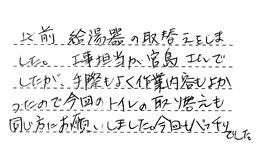 以前 給湯器の取替えをしま
した。工事担当が宮島さんで
したが 手際もよく作業内容もよか
ったので今回のトイレの取り替えも
同じ方にお願いしました。今回もバッチリ
でした。